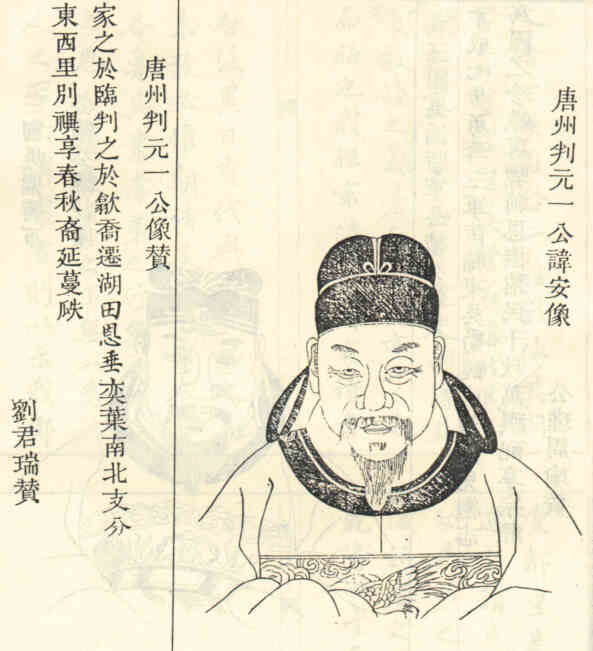 唐州判元一公諱安像
唐州判元一公像賛
家之於臨判之於歙喬遷湖田恩垂奕葉南北支分
東西里別禩享春秋裔延蔓瓞
劉君瑞賛